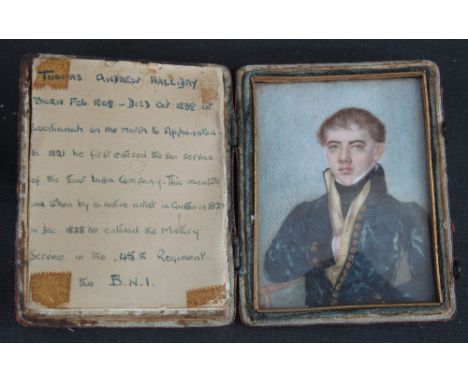 THOMAS ANDREW HALLIDAY
BORN Feb 1808 – DIED Oct 1838 at
on the march to Afghanistan
In 1821 he first entered the sea service
of the East India Company. This miniature
was taken by a native artist in Canton in
Dec. 1828 he entered the Military
Service in the 45th Regiment
the B.N.I.